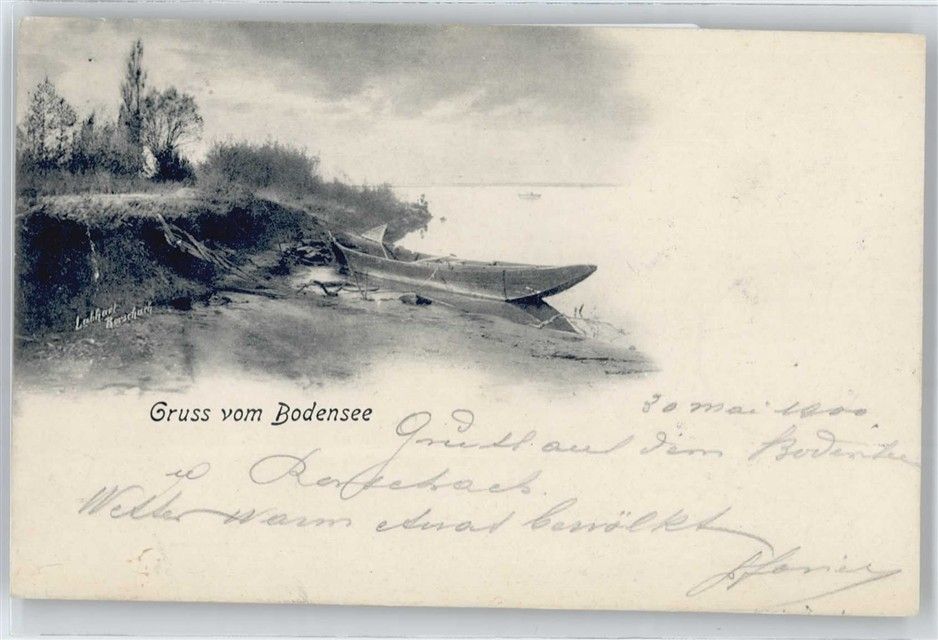 Labhart
Rorschach
Gruss vom Bodensee
30 Mai 1900
Gruss auf dem Bodensee
u Rorschach.
Wetter warm etwas bewölkt